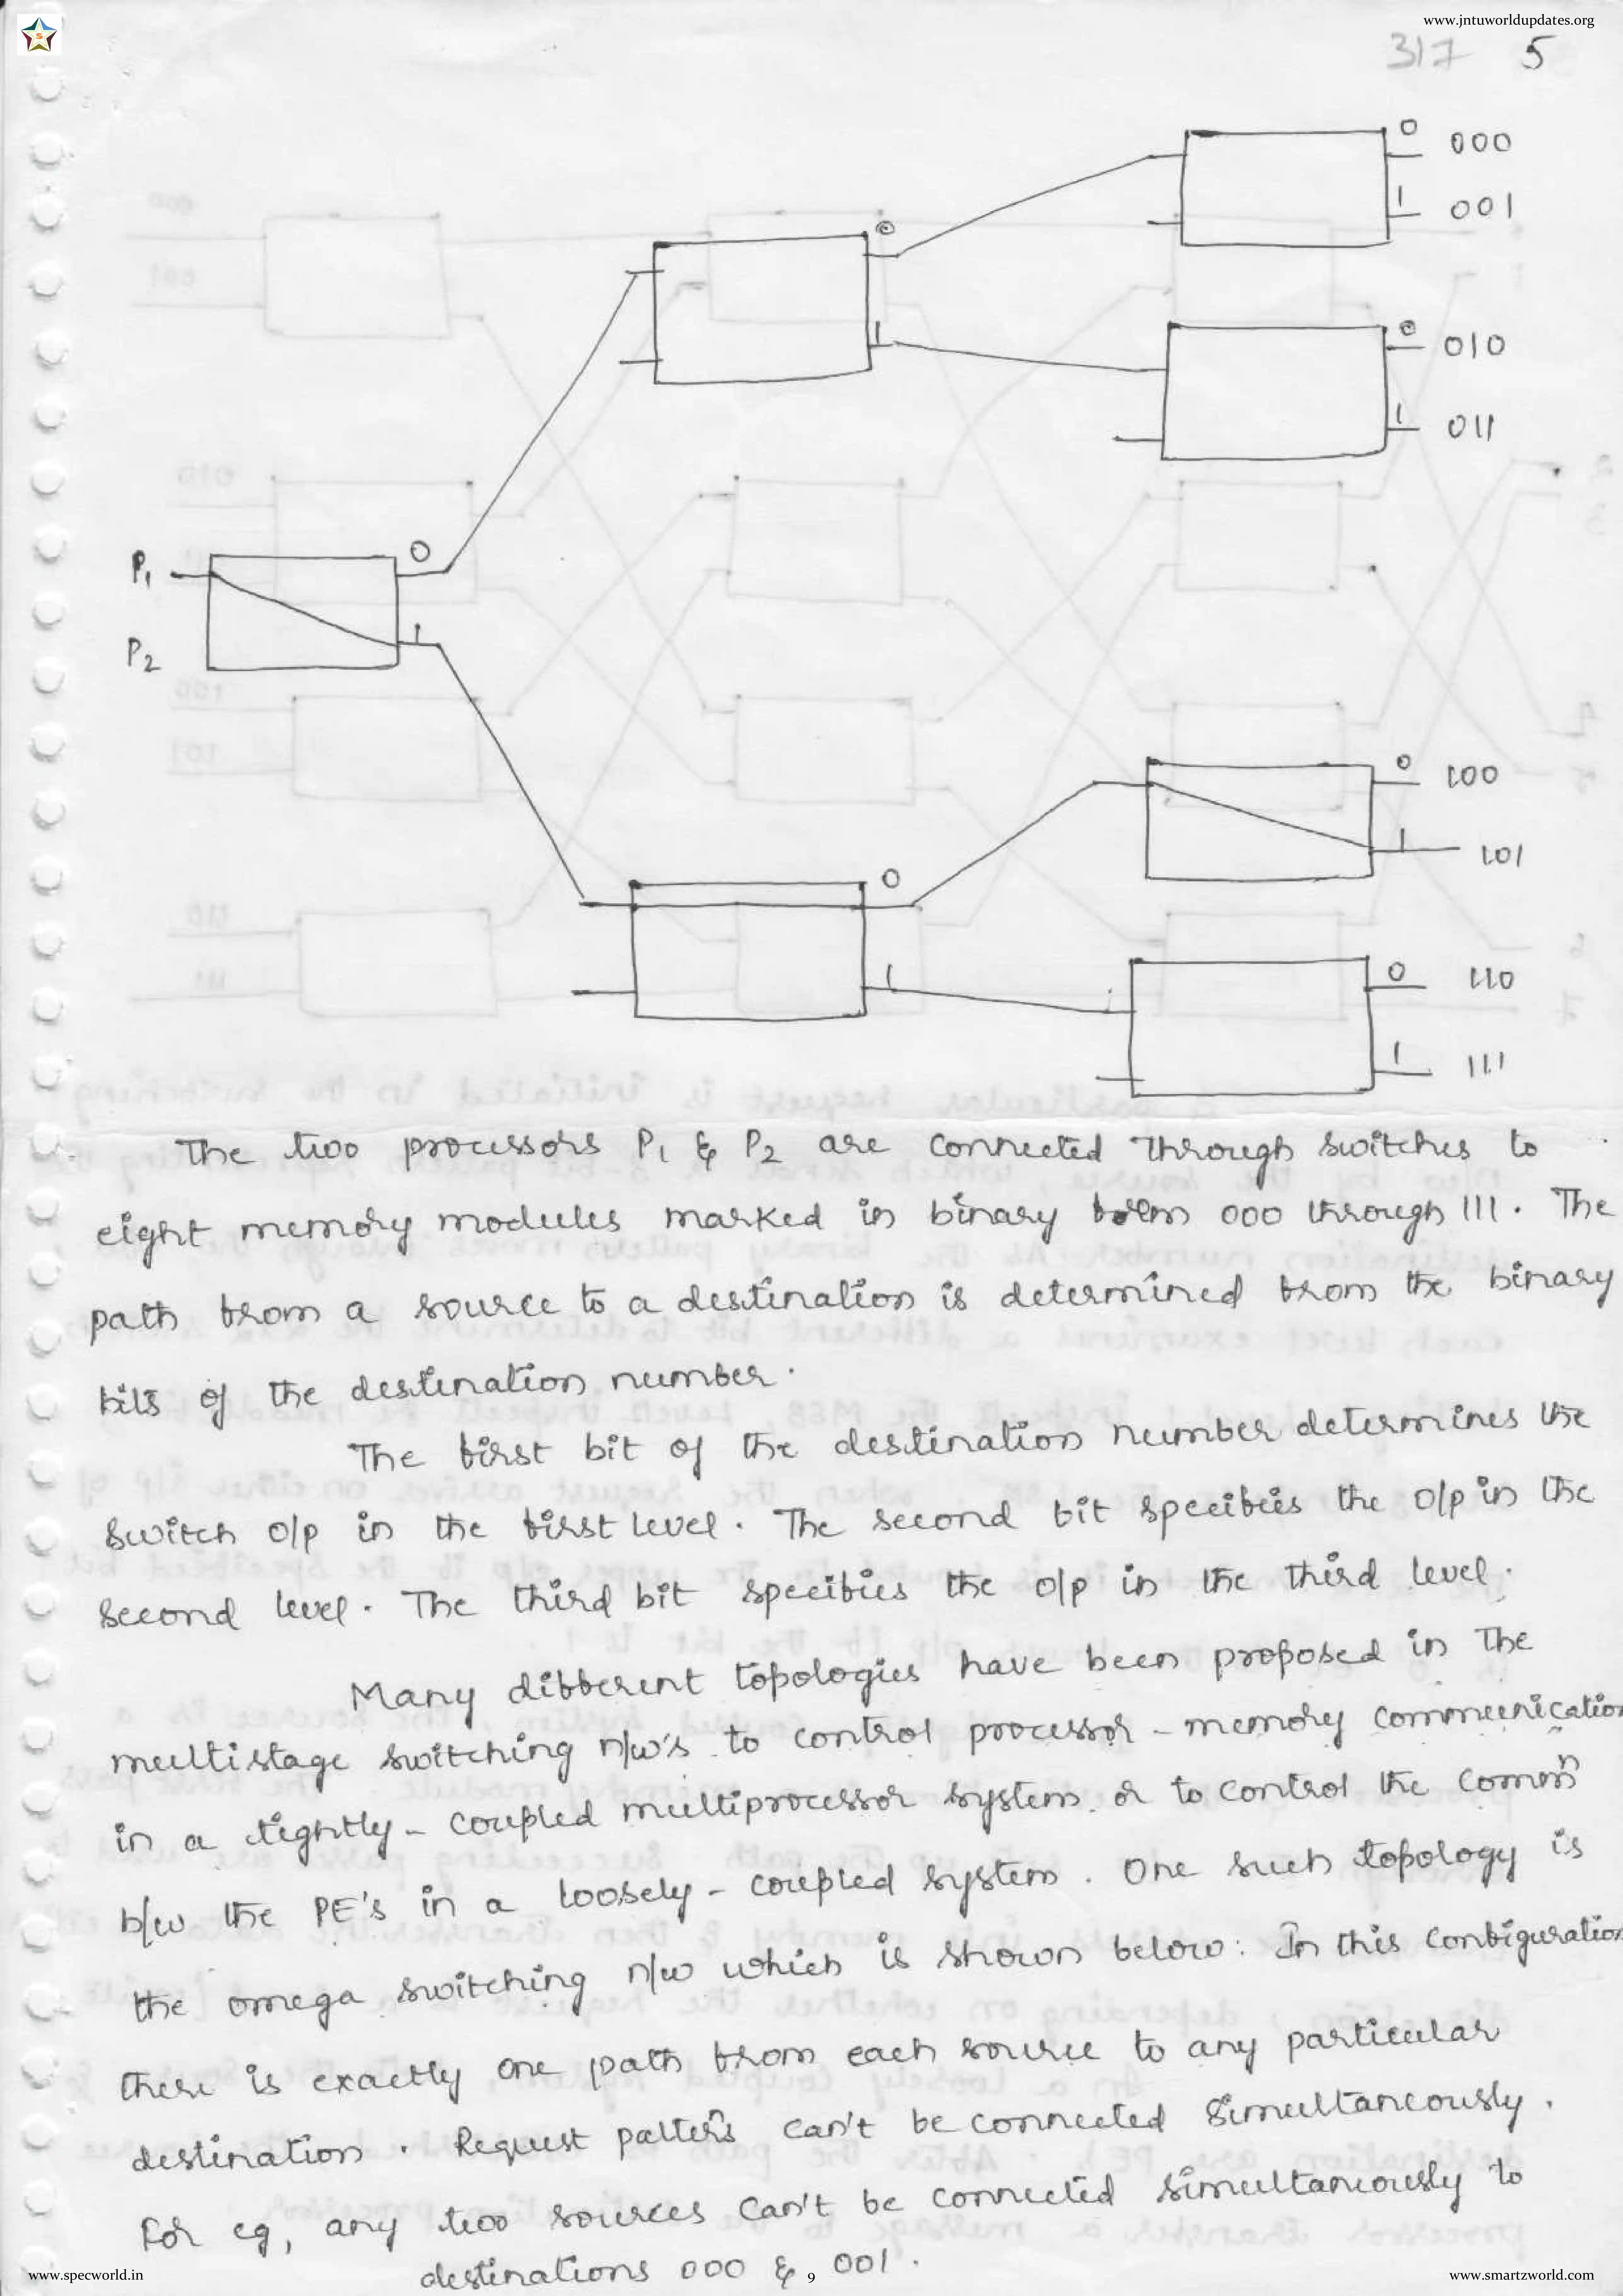 www.jntuworldupdates.org
S
317 5
0 000
1 001
0
1
0 010
1 011
P1 0
P2 1
0 100
1 101
0
1
0 110
1 111
The two processors P1 & P2 are connected through switches to
eight memory modules marked in binary from 000 through 111. The
path from a source to a destination is determined from the binary
bits of the destination number.
The first bit of the destination number determines the
switch o/p in the first level. The second bit specifies the o/p in the
second level. The third bit specifies the o/p in the third level.
Many different topologies have been proposed in the
multistage switching n/w's to control processor - memory communication
in a tightly - coupled multiprocessor system or to control the commn
b/w the PE's in a loosely - coupled system. One such topology is
the omega switching n/w which is shown below: In this configuration
there is exactly one path from each source to any particular
destination. Request patterns can't be connected simultaneously.
For eg, any two sources can't be connected simultaneously to
destinations 000 & 001.
www.specworld.in 9 www.smartzworld.com